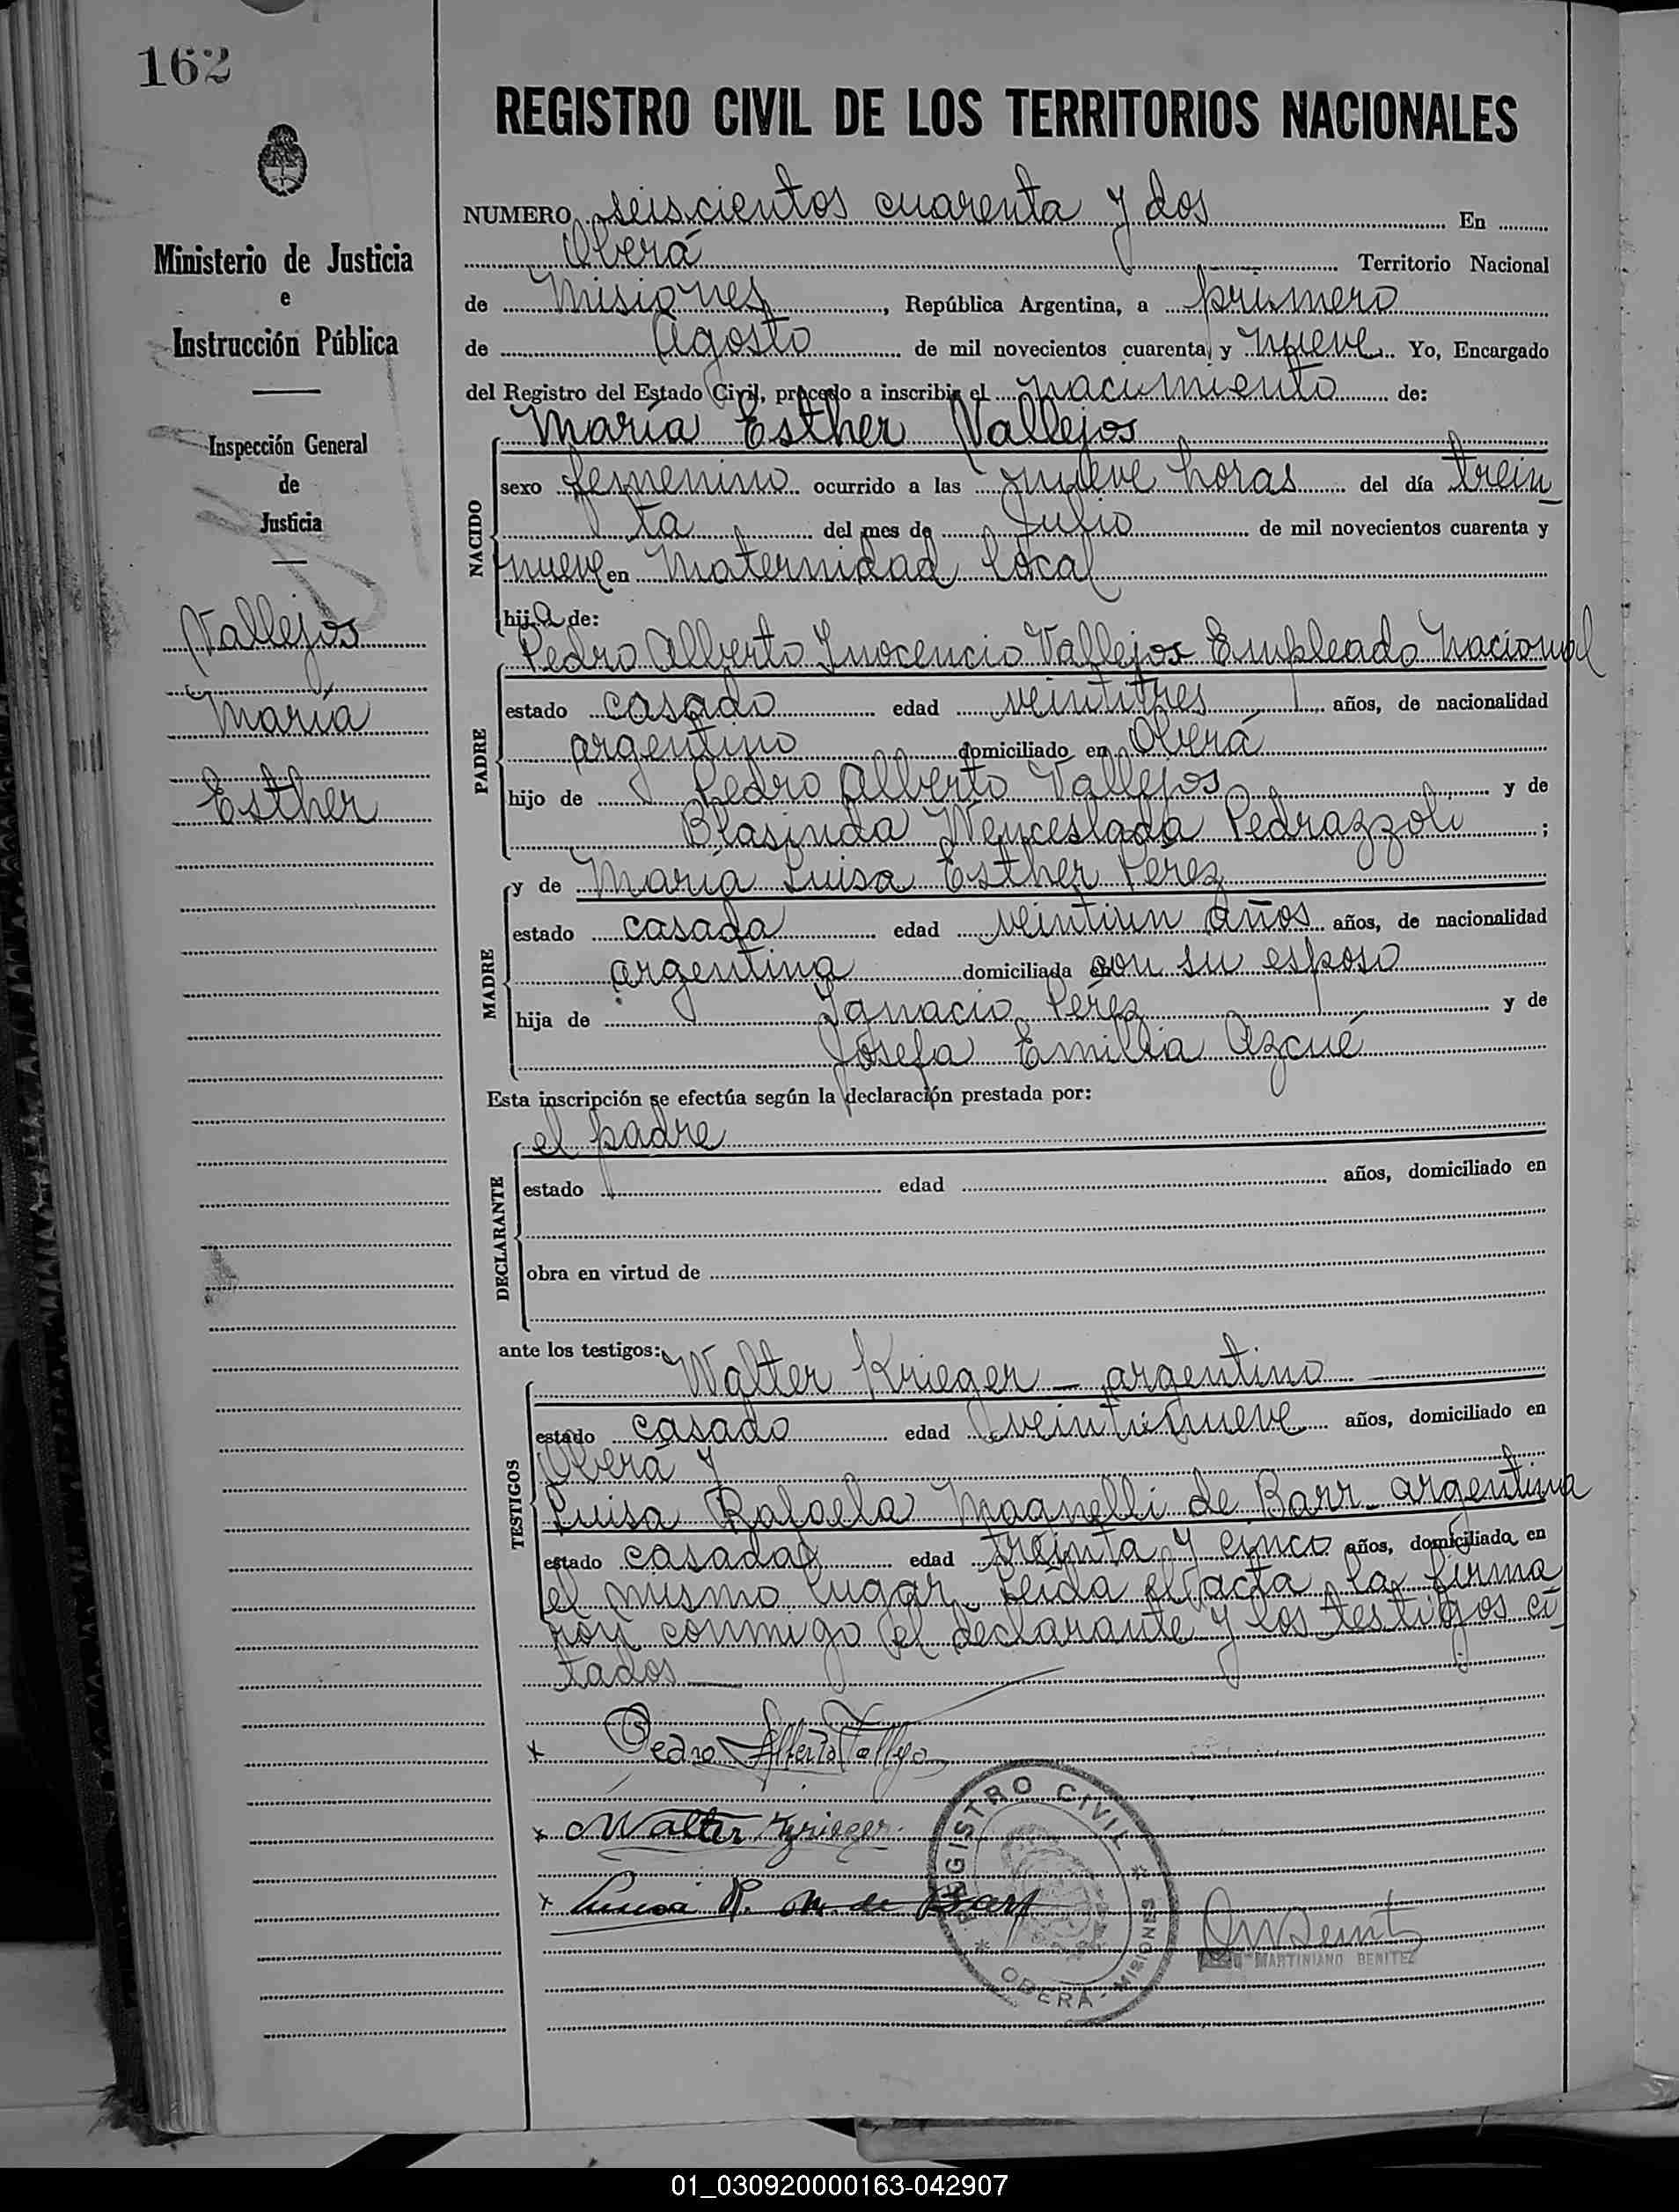 162
REGISTRO CIVIL DE LOS TERRITORIOS NACIONALES
Ministerio de Justicia
e
Instrucción Pública
Inspección General
de
Justicia
Vallejos
María
Esther
NUMERO seiscientos cuarenta y dos En
Oberá Territorio Nacional
de Misiones, República Argentina, a primero
de Agosto de mil novecientos cuarenta y nueve Yo, Encargado
del Registro del Estado Civil, procedo a inscribir el nacimiento de:
NACIDO
María Esther Vallejos
sexo femenino ocurrido a las nueve horas del día trein
ta del mes de Julio de mil novecientos cuarenta y
nueve en Maternidad local
hija de:
PADRE
Pedro Alberto Inocencio Vallejos Empleado Nacional
estado casado edad veintitres años, de nacionalidad
argentino domiciliado en Oberá
hijo de Pedro Alberto Vallejos y de
Blasinda Wenceslada Pedrazzoli ;
MADRE
y de María Luisa Esther Perez
estado casada edad veintiun años años, de nacionalidad
argentina domiciliada con su esposo
hija de Ignacio Pérez y de
Josefa Emilia Azcué
Esta inscripción se efectúa según la declaración prestada por:
DECLARANTE
el padre
estado edad años, domiciliado en
obra en virtud de
ante los testigos:
TESTIGOS
Walter Krieger — argentino
estado casado edad veintinueve años, domiciliado en
Oberá y
Luisa Rafaela Magnelli de Barr - argentina
estado casada edad treinta y cinco años, domiciliada en
el mismo lugar. Leida el acta, la firma
ron conmigo el declarante y los testigos ci
tados —
x Pedro Alberto Vallejo
x Walter Krieger
x Luisa R. M. de Barr
REGISTRO CIVIL
OBERÁ - MISIONES
MARTINIANO BENITEZ
01_030920000163-042907